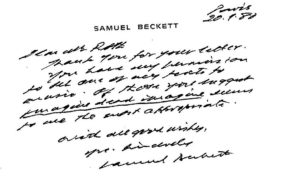 Paris
20.9.80
SAMUEL BECKETT
Dear Mr Roth
Thank you for your letter.
You have my permission
to set one of my texts to
music. Of those you suggest
Imagine dead imagine seems
to me the most appropriate.
With all good wishes,
yrs. sincerely
Samuel Beckett